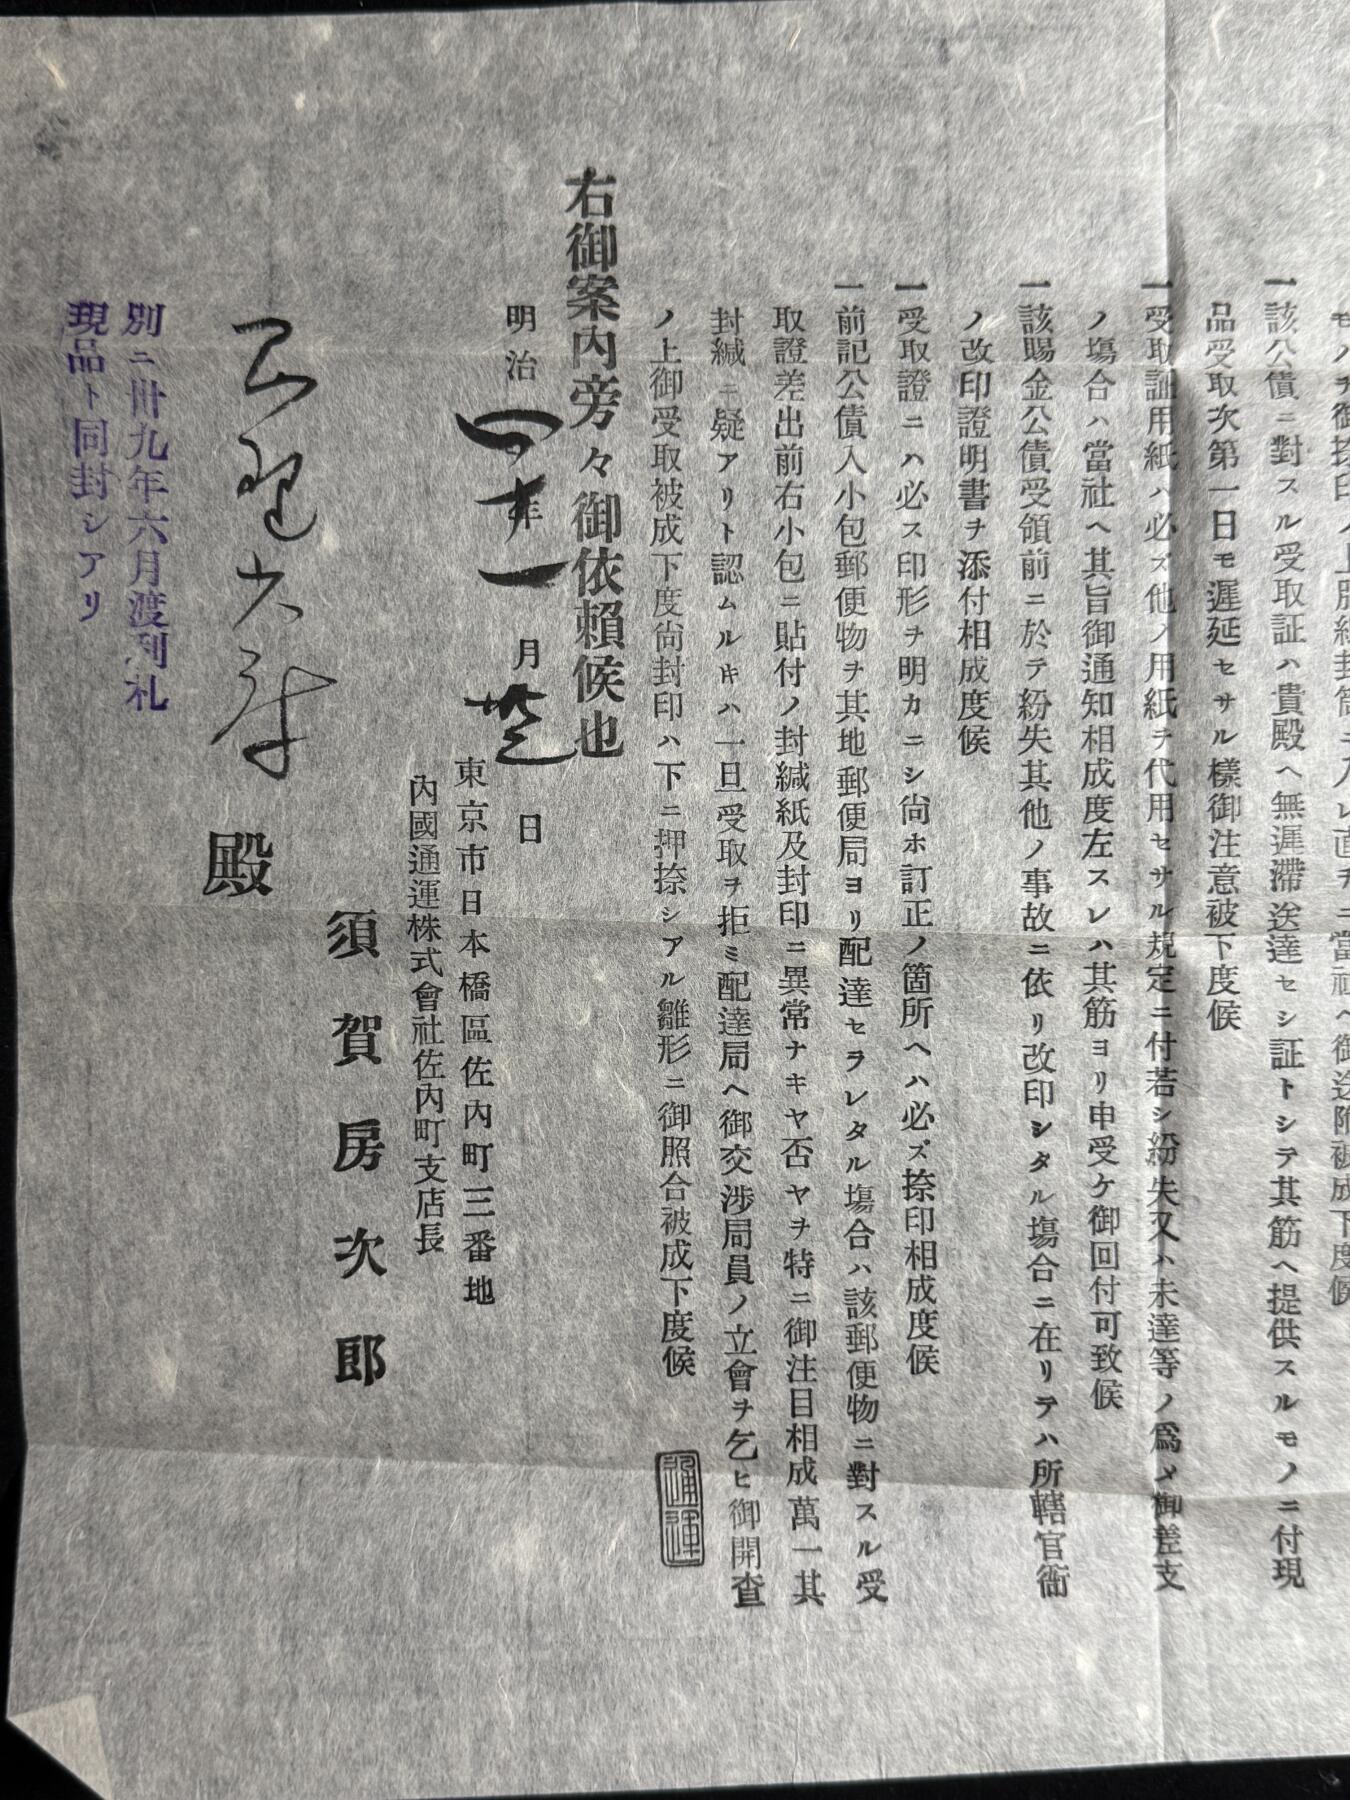 モノ御捺印ノ上
一該公債ニ對スル受取証ハ貴殿ヘ無遲滯送達セシ証トシテ其筋ヘ提供スルモノニ付現
品受取次第一日モ遲延セサル樣御注意被下度候
一受取証用紙ハ必ズ他ノ用紙ヲ代用セサル規定ニ付若シ紛失又ハ未達等ノ爲メ御差支
ノ塲合ハ當社ヘ其旨御通知相成度左スレハ其筋ヨリ申受ケ御回付可致候
一該賜金公債受領前ニ於テ紛失其他ノ事故ニ依リ改印シタル塲合ニ在リテハ所轄官衙
ノ改印證明書ヲ添付相成度候
一受取證ニハ必ス印形ヲ明カニシ尙ホ訂正ノ箇所ヘハ必ズ捺印相成度候
一前記公債入小包郵便物ヲ其地郵便局ヨリ配達セラレタル塲合ハ該郵便物ニ對スル受
取證差出前右小包ニ貼付ノ封緘紙及封印ニ異常ナキヤ否ヤヲ特ニ御注目相成萬一其
封緘ニ疑アリト認ムルキハ一旦受取ヲ拒ミ配達局ヘ御交渉局員ノ立會ヲ乞ヒ御開査
ノ上御受取被成下度尙封印ハ下ニ押捺シアル雛形ニ御照合被成下度候
通運
右御案內旁々御依賴候也
明治四十年一月 日
東京市日本橋區佐內町三番地
內國通運株式會社佐內町支店長
須賀房次郎
殿
別ニ卅九年六月渡利札
現品ト同封シアリ